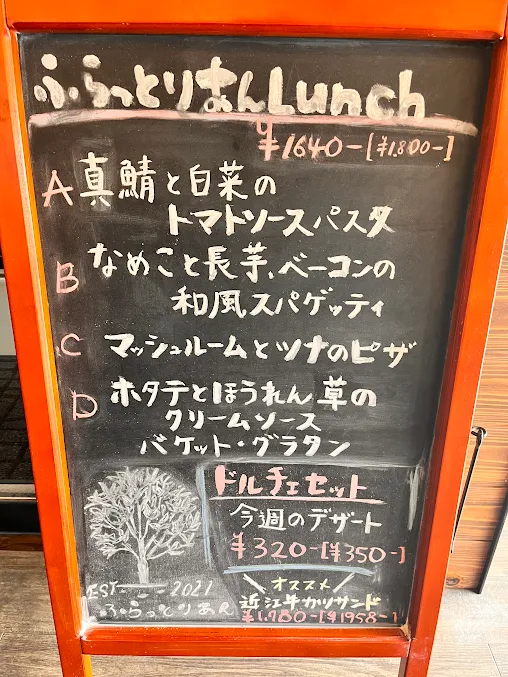 ふらっとりあんLunch
¥1640-[¥1,800-]
A 真鯖と白菜の
トマトソースパスタ
B なめこと長芋、ベーコンの
和風スパゲッティ
C マッシュルームとツナのピザ
D ホタテとほうれん草の
クリームソース
バケット・グラタン
ドルチェセット
今週のデザート
¥320-[¥350-]
EST 2021
ふらっとりあん
オススメ
近江牛カツサンド
¥1,780-[¥1958-]